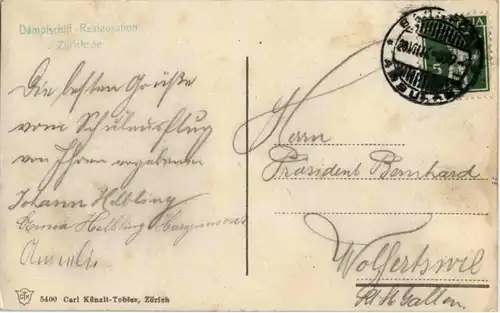 Dampfschiff-Restauration
Zürichsee
Die besten Grüße
vom Schulausflug
von Ihrem ergebenen
Johann Helbling
Helbling
Herrn
Präsident Bernhard
Wolfertswil
Kt. St. Gallen.
5400 Carl Künzli-Tobler, Zürich